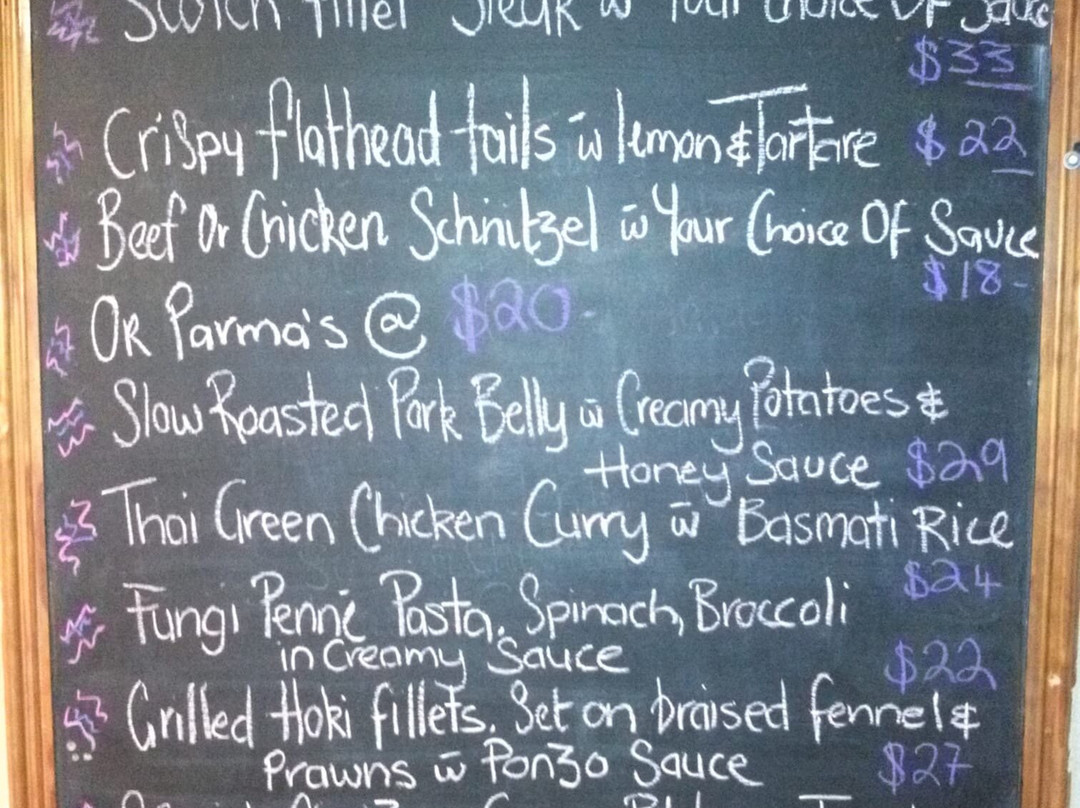 Scotch fillet Steak w̄ Your Choice Of Sauce
$33
Crispy flathead tails w̄ lemon & Tartare $22
Beef Or Chicken Schnitzel w̄ Your Choice Of Sauce
$18-
OR Parma's @ $20-
Slow Roasted Pork Belly w̄ Creamy Potatoes &
Honey Sauce $29
Thai Green Chicken Curry w̄ Basmati Rice
$24
Fungi Penne Pasta, Spinach, Broccoli
in Creamy Sauce $22
Grilled Hoki fillets. Set on braised fennel &
Prawns w̄ Ponzo Sauce $27